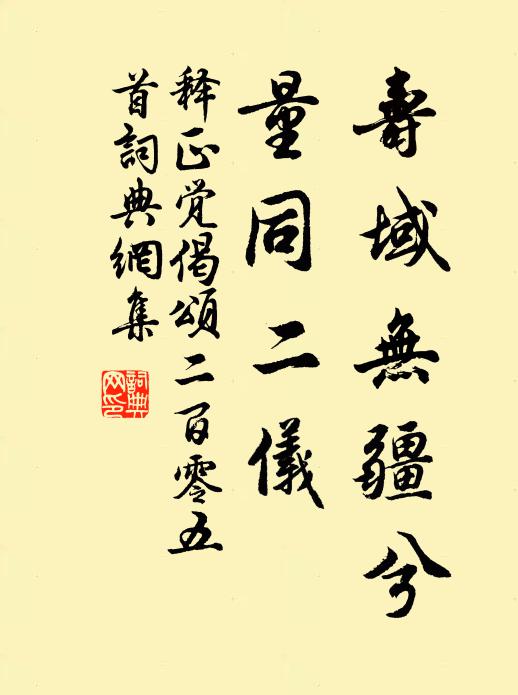 壽域無疆兮
量同二儀
释正觉偈頌二百零五
首詞典網集
詞典
网印